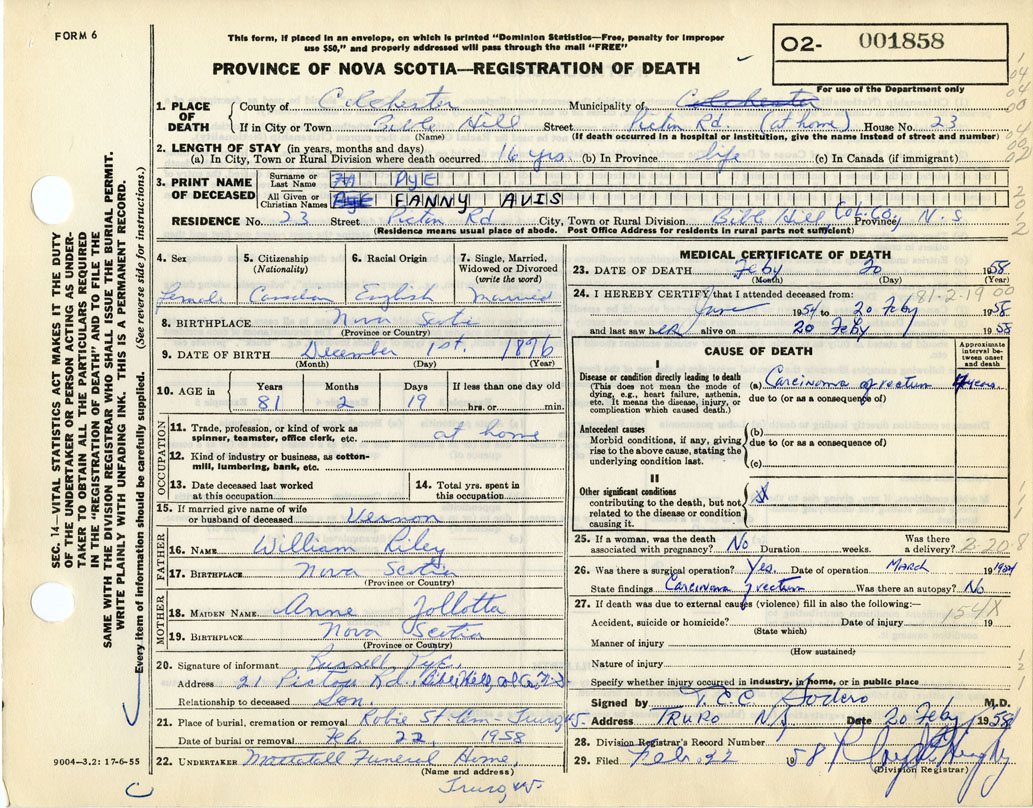 FORM 6
This form, if placed in an envelope, on which is printed "Dominion Statistics—Free, penalty for improper
use $50," and properly addressed will pass through the mail "FREE"
PROVINCE OF NOVA SCOTIA—REGISTRATION OF DEATH
O2- 001858
For use of the Department only
1. PLACE OF DEATH
County of Colchester Municipality of Colchester
If in City or Town Bible Hill Street Picton Rd. (at home) House No. 23
(Name) (If death occurred in a hospital or institution, give the name instead of street and number)
2. LENGTH OF STAY (in years, months and days)
(a) In City, Town or Rural Division where death occurred 16 yrs. (b) In Province life (c) In Canada (if immigrant)
3. PRINT NAME OF DECEASED
Surname or Last Name PYE
All Given or Christian Names FANNY AVIS
RESIDENCE No. 23 Street Picton Rd City, Town or Rural Division Bible Hill, Col. Co, Province N.S
(Residence means usual place of abode. Post Office Address for residents in rural parts not sufficient)
4. Sex 5. Citizenship (Nationality) 6. Racial Origin 7. Single, Married, Widowed or Divorced (write the word)
Female Canadian English Married
8. BIRTHPLACE Nova Scotia
(Province or Country)
9. DATE OF BIRTH December 1st. 1876
(Month) (Day) (Year)
10. AGE in Years Months Days If less than one day old
81 2 19 hrs. or min.
OCCUPATION
11. Trade, profession, or kind of work as spinner, teamster, office clerk, etc. at home
12. Kind of industry or business, as cotton-mill, lumbering, bank, etc.
13. Date deceased last worked at this occupation
14. Total yrs. spent in this occupation
15. If married give name of wife or husband of deceased Vernon
FATHER
16. NAME William Riley
17. BIRTHPLACE Nova Scotia
(Province or Country)
MOTHER
18. MAIDEN NAME Anne
19. BIRTHPLACE Nova Scotia
(Province or Country)
20. Signature of informant Russell Pye.
Address 21 Picton Rd. Bible Hill, Col Co, N.S.
Relationship to deceased Son.
21. Place of burial, cremation or removal Robie St. Cem - Truro, N.S.
Date of burial or removal Feb. 22, 1958
22. UNDERTAKER Mattatall Funeral Home,
(Name and address)
Truro, N.S.
9004—3.2: 17-6-55
MEDICAL CERTIFICATE OF DEATH
23. DATE OF DEATH Feby 20 1958
(Month) (Day) (Year)
81-2-19 00
24. I HEREBY CERTIFY that I attended deceased from:
June 1954 to 20 Feby 1958
and last saw her alive on 20 Feby 1958
CAUSE OF DEATH
Approximate interval between onset and death
I
Disease or condition directly leading to death
(This does not mean the mode of dying, e.g., heart failure, asthenia, etc. It means the disease, injury, or complication which caused death.)
(a) Carcinoma of rectum 4 years
due to (or as a consequence of)
Antecedent causes
Morbid conditions, if any, giving rise to the above cause, stating the underlying condition last.
(b)
due to (or as a consequence of)
(c)
II
Other significant conditions
contributing to the death, but not related to the disease or condition causing it.
25. If a woman, was the death associated with pregnancy? No Duration weeks. Was there a delivery?
2-20-8
26. Was there a surgical operation? Yes. Date of operation March 1954
State findings Carcinoma rectum Was there an autopsy? No
27. If death was due to external causes (violence) fill in also the following:—
154X
Accident, suicide or homicide? Date of injury 19
(State which)
Manner of injury
(How sustained)
Nature of injury
Specify whether injury occurred in industry, in home, or in public place
Signed by T.C.C. Sodero M.D.
Address TRURO N/S Date 20 Feby 1958
28. Division Registrar's Record Number
29. Filed Febr. 22 1958
(Division Registrar)
SEC. 14—VITAL STATISTICS ACT MAKES IT THE DUTY
OF THE UNDERTAKER OR PERSON ACTING AS UNDER-
TAKER TO OBTAIN ALL THE PARTICULARS REQUIRED
IN THE "REGISTRATION OF DEATH" AND TO FILE THE
SAME WITH THE DIVISION REGISTRAR WHO SHALL ISSUE THE BURIAL PERMIT.
WRITE PLAINLY WITH UNFADING INK. THIS IS A PERMANENT RECORD.
Every item of information should be carefully supplied. (See reverse side for instructions.)